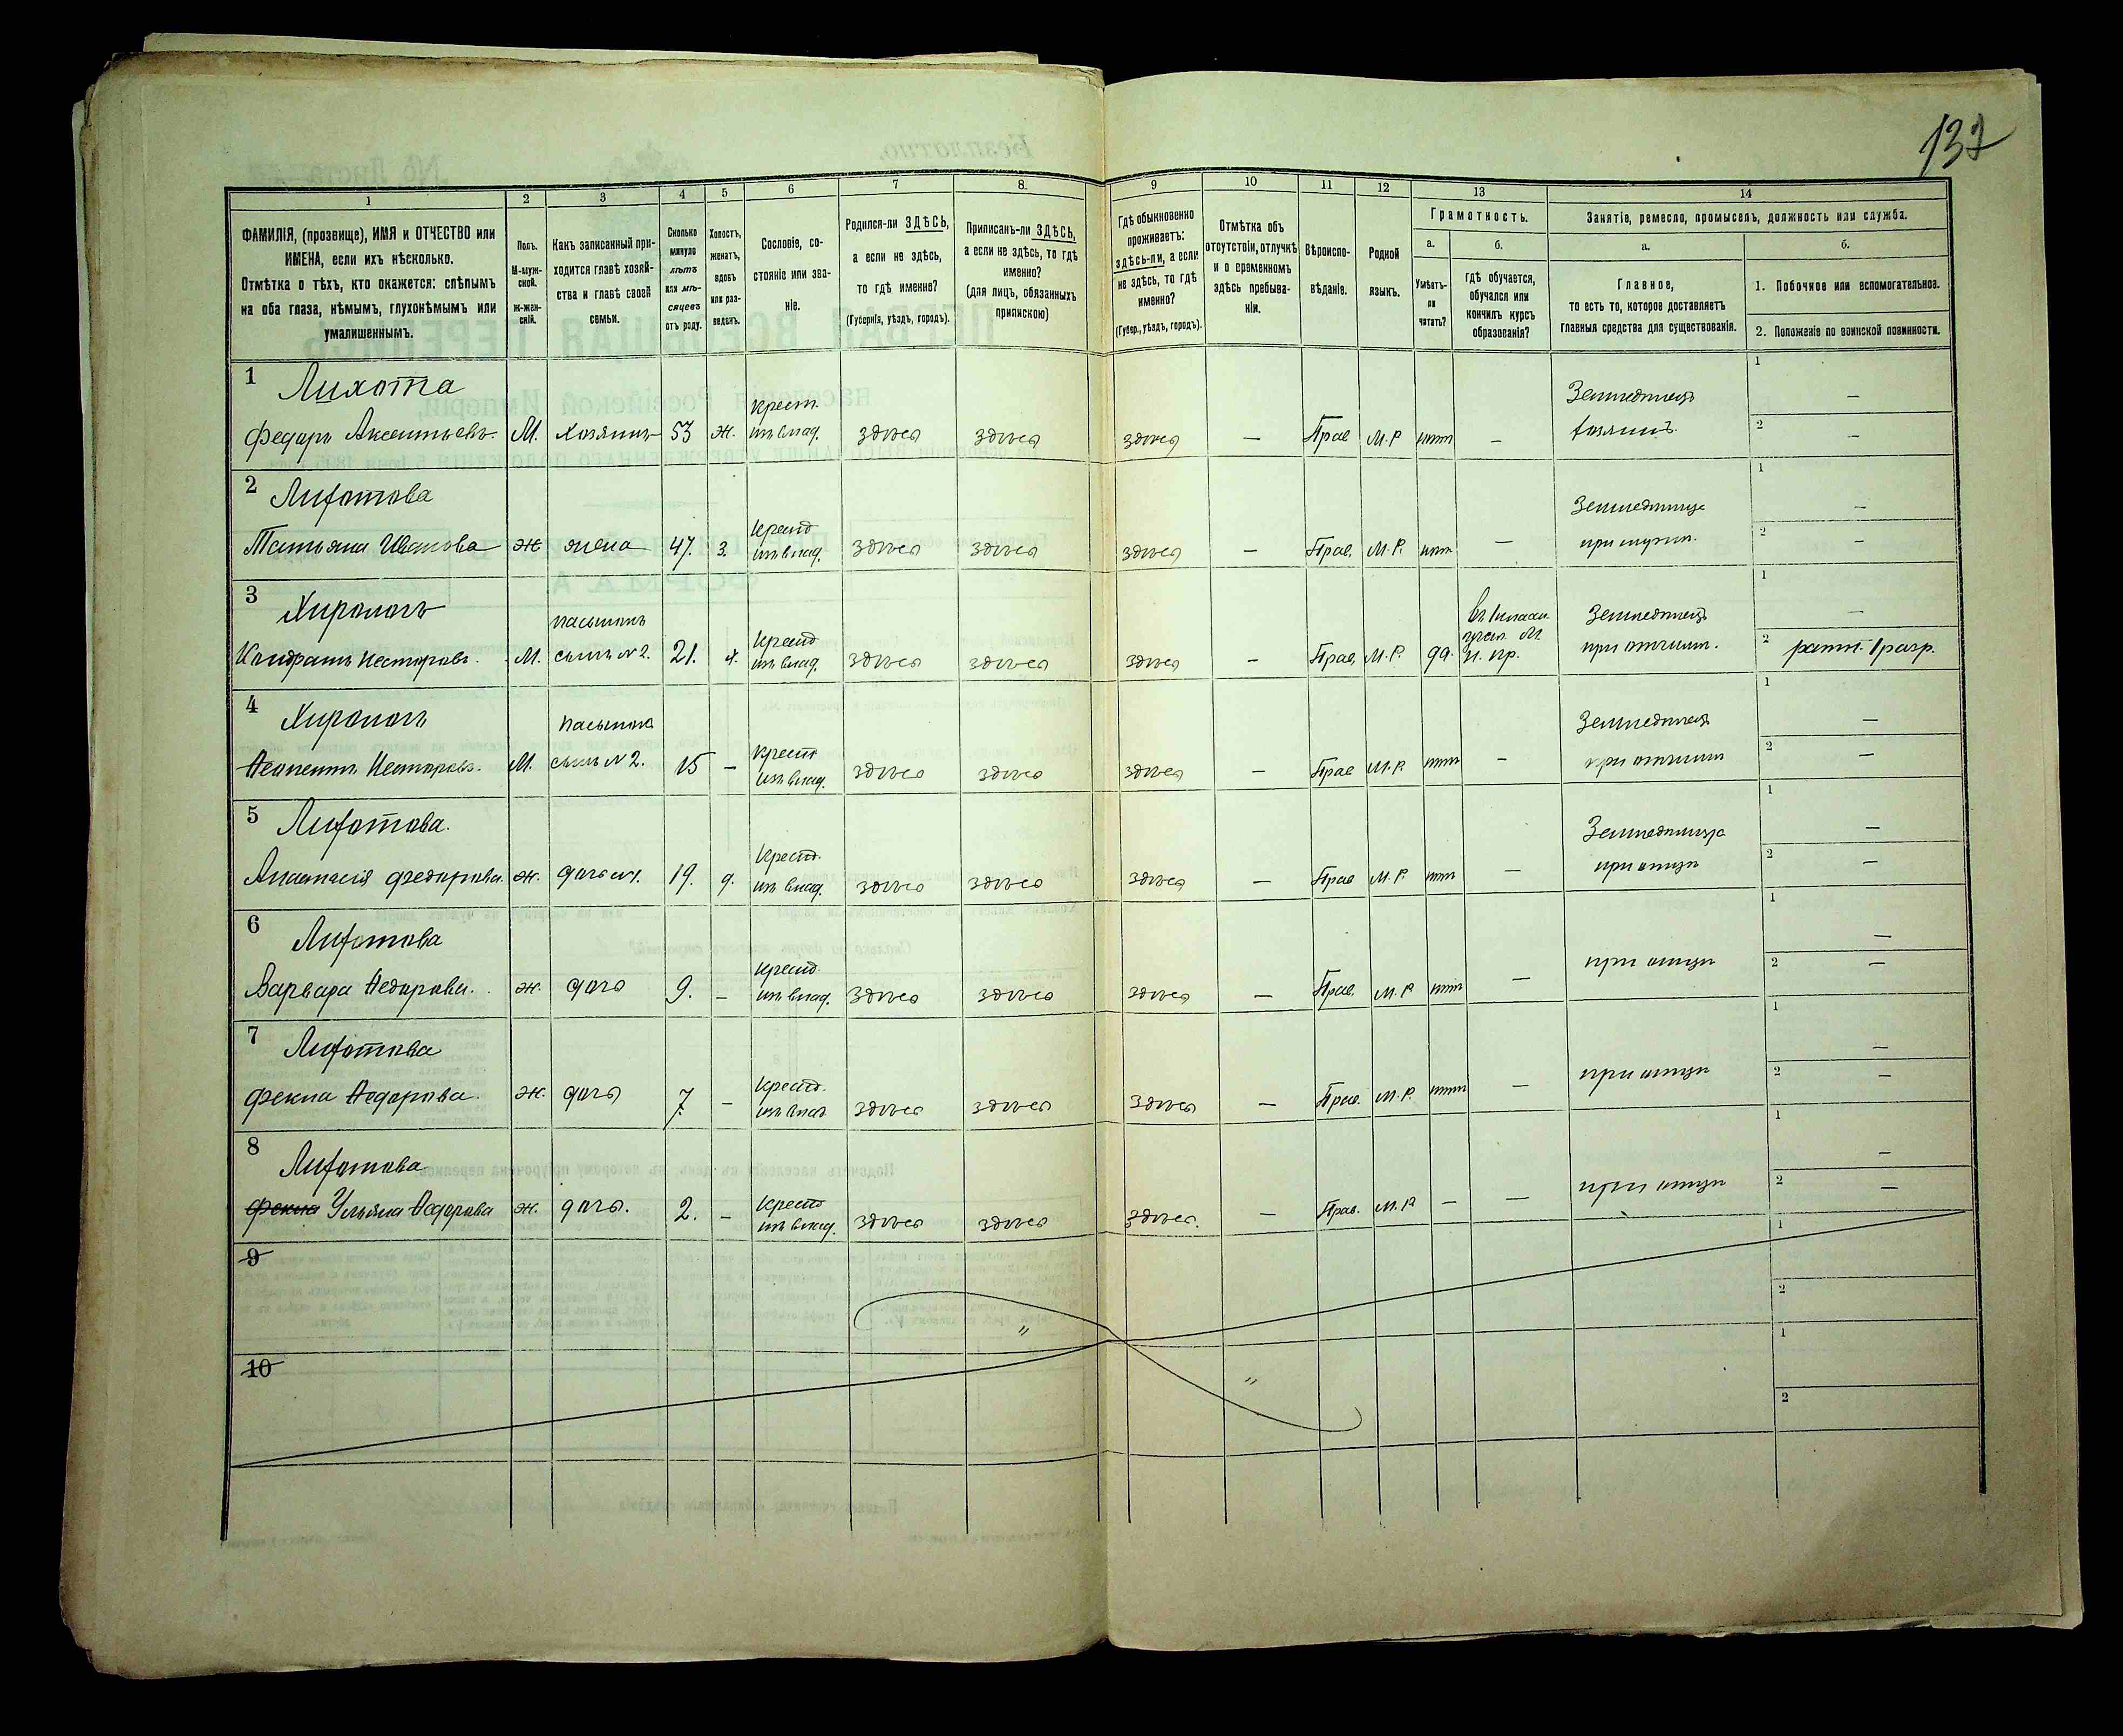 132
1
2
3
4
5
6
7
8.
9
10
11
12
13
14
ФАМИЛІЯ, (прозвище), ИМЯ и ОТЧЕСТВО или
ИМЕНА, если ихъ нѣсколько.
Отмѣтка о тѣхъ, кто окажется: слѣпымъ
на оба глаза, нѣмымъ, глухонѣмымъ или
умалишеннымъ.
Полъ.
М-муж-
ской.
Ж-жен-
скій.
Какъ записанный при-
ходится главѣ хозяй-
ства и главѣ своей
семьи.
Сколько
минуло
лѣтъ
или мѣ-
сяцевъ
отъ роду.
Холостъ,
женатъ,
вдовъ
или раз-
веденъ.
Сословіе, со-
стояніе или зва-
ніе.
Родился-ли ЗДѢСЬ,
а если не здѣсь,
то гдѣ именно?
(Губернія, уѣздъ, городъ).
Приписанъ-ли ЗДѢСЬ,
а если не здѣсь, то гдѣ
именно?
(для лицъ, обязанныхъ
припискою)
Гдѣ обыкновенно
проживаетъ:
здѣсь-ли, а если
не здѣсь, то гдѣ
именно?
(Губер., уѣздъ, городъ).
Отмѣтка объ
отсутствіи, отлучкѣ
и о временномъ
здѣсь пребыва-
ніи.
Вѣроиспо-
вѣданіе.
Родной
языкъ.
Грамотность.
а.
Умѣетъ-
ли
читать?
б.
Гдѣ обучается,
обучался или
кончилъ курсъ
образованія?
Занятіе, ремесло, промыселъ, должность или служба.
а.
Главное,
то есть то, которое доставляетъ
главныя средства для существованія.
б.
1. Побочное или вспомогательное.
2. Положеніе по воинской повинности.
1 Лихота
Федоръ Аксентьевъ. М. Хозяинъ 53 ж. Крест. изъ влад. здѣсь здѣсь здѣсь — Прав М.Р нѣтъ — Земледѣлецъ хозяинъ. 1 — 2 —
2 Лихотова
Татьяна Иванова ж жена 47. з. Крест изъ влад. здѣсь здѣсь здѣсь — Прав. М.Р. нѣтъ — Земледѣлица при мужѣ. 1 — 2 —
3
Кондратъ Несторовъ. М. пасынокъ сынъ N 2. 21. х. Крест изъ влад. здѣсь здѣсь здѣсь — Прав. М.Р. да. Земледѣлецъ при отчимѣ. 1 — 2 ратн. 1 разр.
4
Несторовъ. М. пасынокъ сынъ N 2. 15 — Крест изъ влад. здѣсь здѣсь здѣсь — Прав М.Р. нѣтъ — Земледѣлецъ при отчимѣ 1 — 2 —
5 Лихотова.
Анастасія Федорова. ж. дочь N 1. 19. д. Крест. изъ влад. здѣсь здѣсь здѣсь — Прав М.Р. нѣтъ — Земледѣлица при отцѣ 1 — 2 —
6 Лихотова
Варвара Ѳедорова. ж. дочь 9. — Крест. изъ влад. здѣсь здѣсь здѣсь — Прав. М.Р нѣтъ — при отцѣ 1 — 2 —
7 Лихотова
Фекла Ѳедорова. ж. дочь 7. — Крест. изъ влад здѣсь здѣсь здѣсь — Прав. М.Р. нѣтъ — при отцѣ 1 — 2 —
8 Лихотова
Фекла Ульяна Ѳедорова ж. дочь. 2. — Крест изъ влад. здѣсь здѣсь здѣсь. — Прав. М.Р — — при отцѣ 1 — 2 —
9 1 2
10 1 2